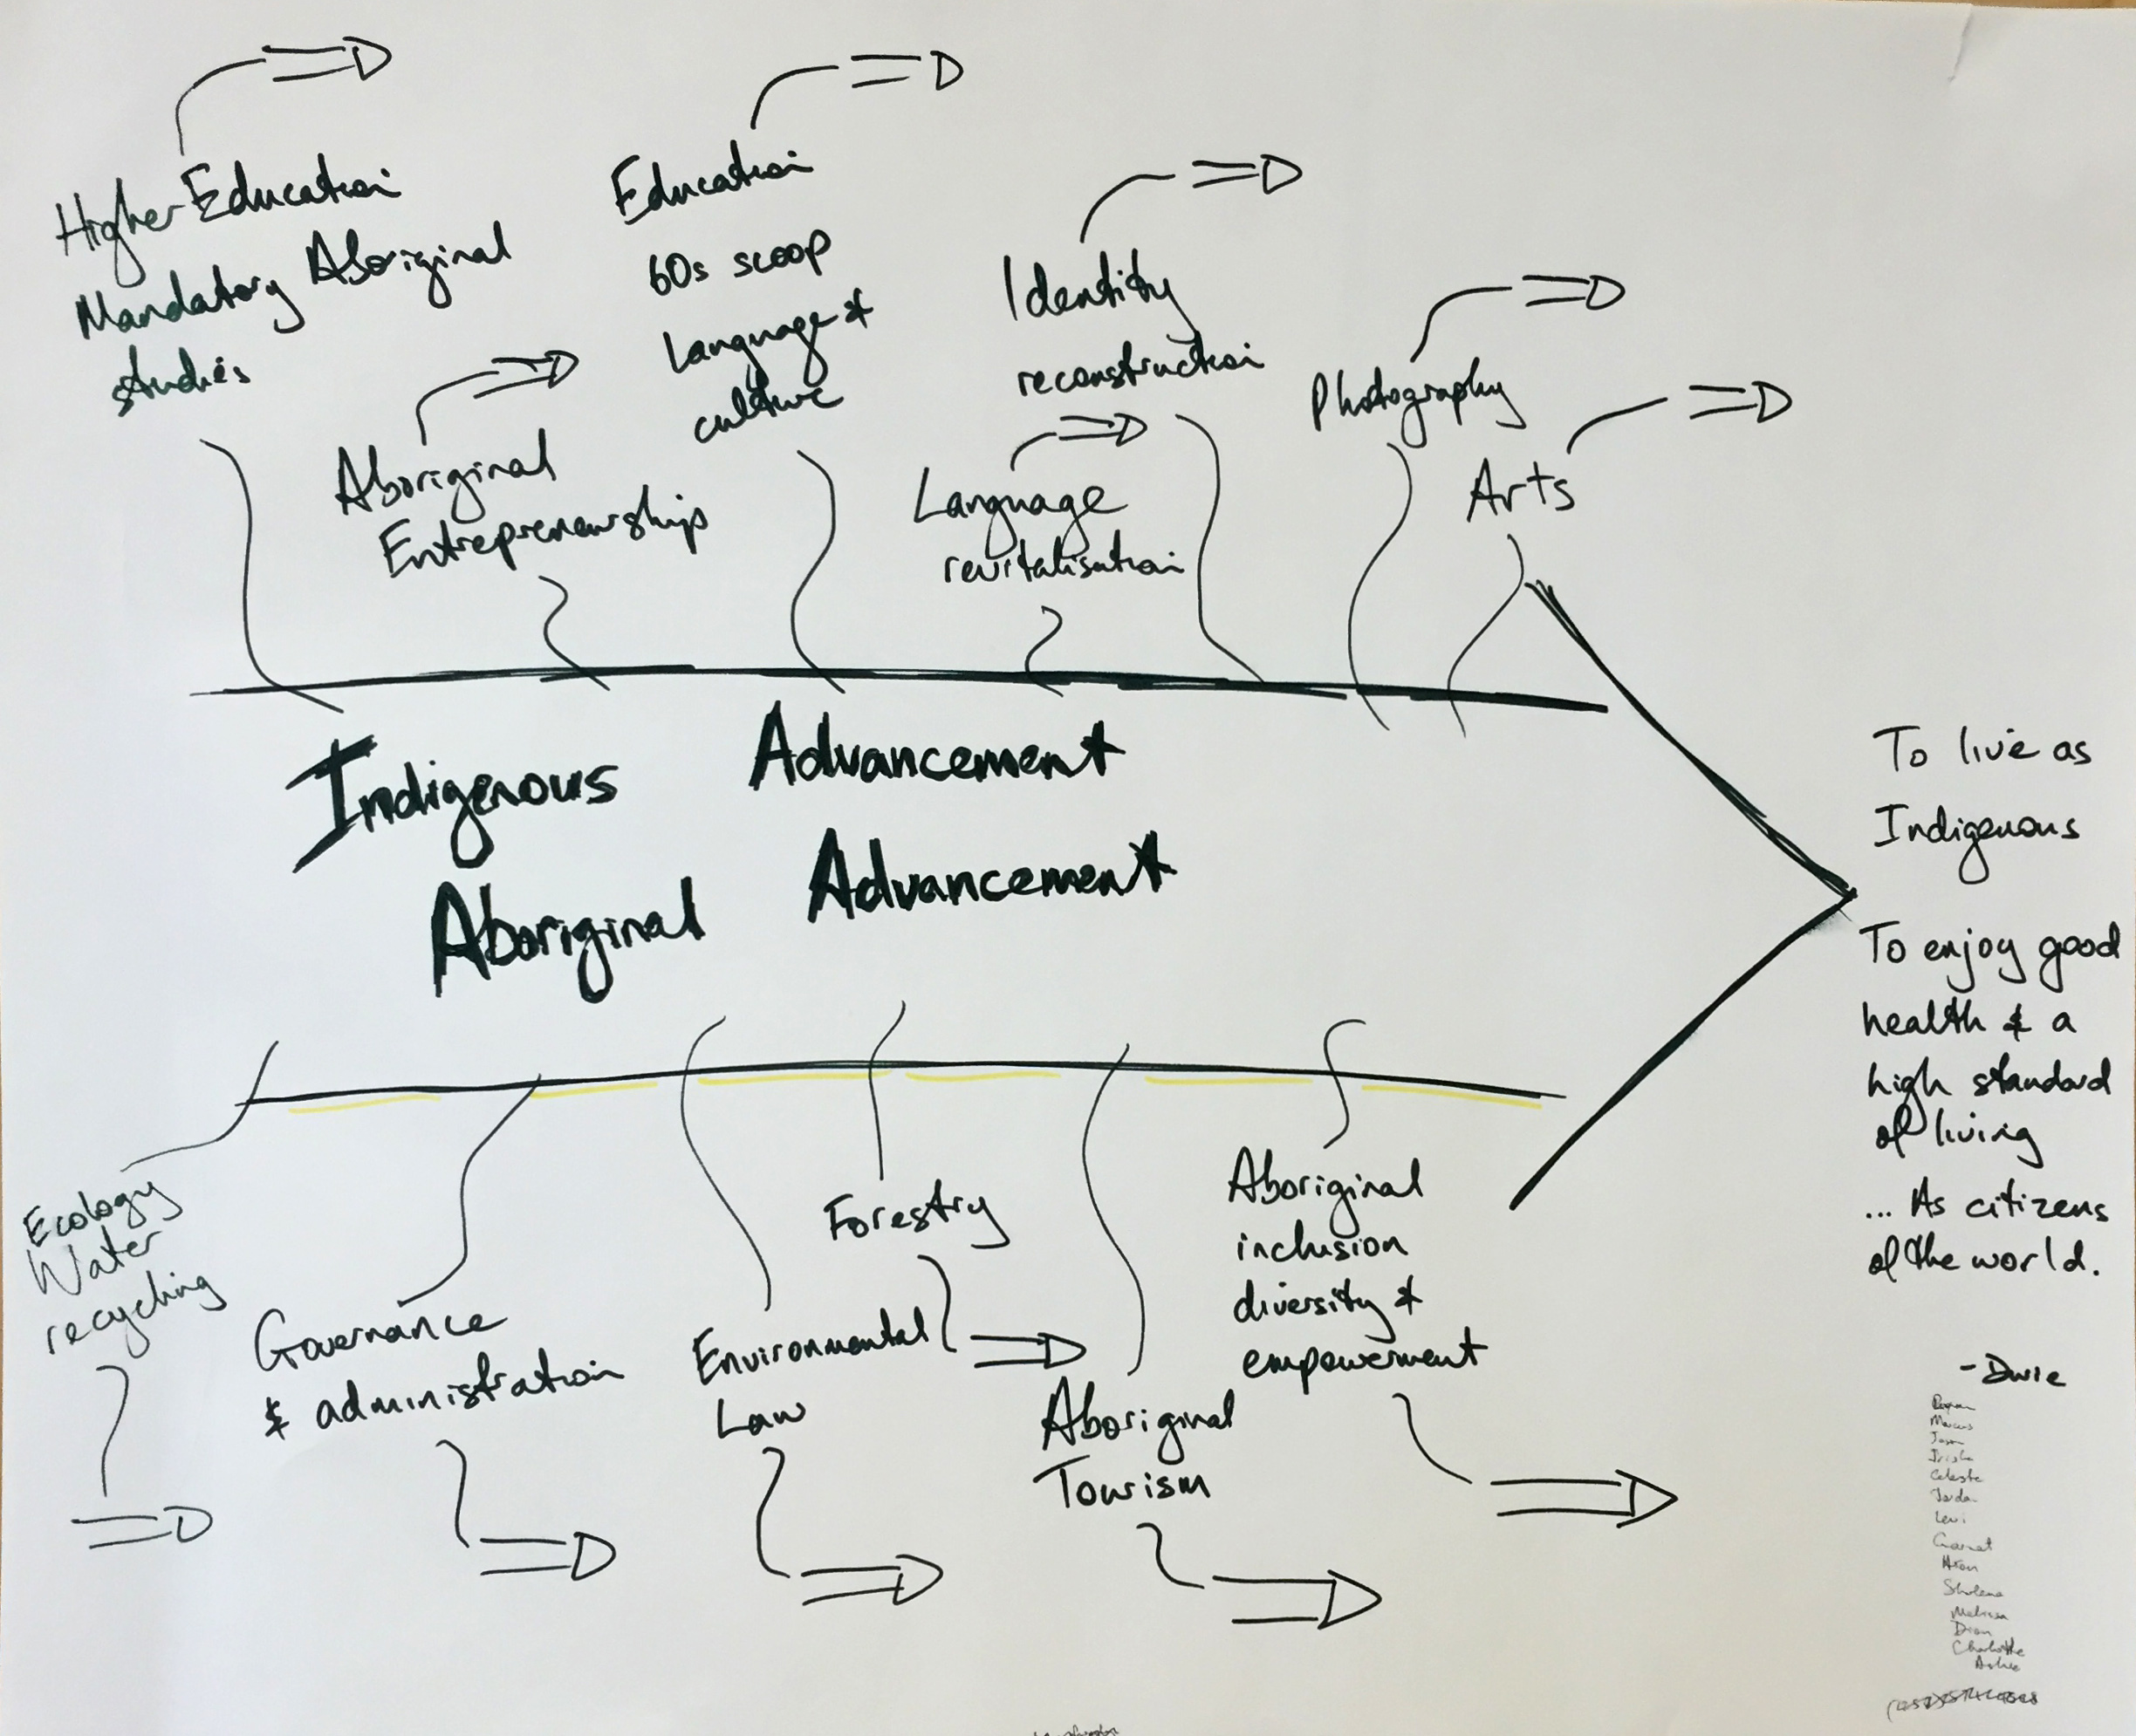 Higher Education
Mandatory Aboriginal
studies
Aboriginal
Entrepreneurship
Education
60s scoop
Language &
culture
Identity
reconstruction
Language
revitalisation
Photography
Arts
Indigenous Advancement
Aboriginal Advancement
Ecology
Water
recycling
Governance
& administration
Environmental
Law
Forestry
Aboriginal
Tourism
Aboriginal
inclusion
diversity &
empowerment
To live as
Indigenous
To enjoy good
health & a
high standard
of living
... As citizens
of the world.
- Dwie
Marcus
Jason
Celeste
Jordan
Levi
Garnet
Melissa
Charlotte